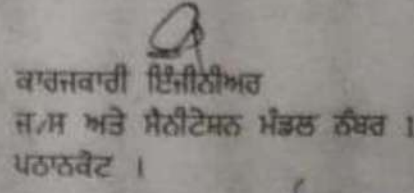 ਕਾਰਜਕਾਰੀ ਇੰਜੀਨੀਅਰ
ਜ/ਸ ਅਤੇ ਸੈਨੀਟੇਸ਼ਨ ਮੰਡਲ ਨੰਬਰ 1
ਪਠਾਨਕੋਟ ।